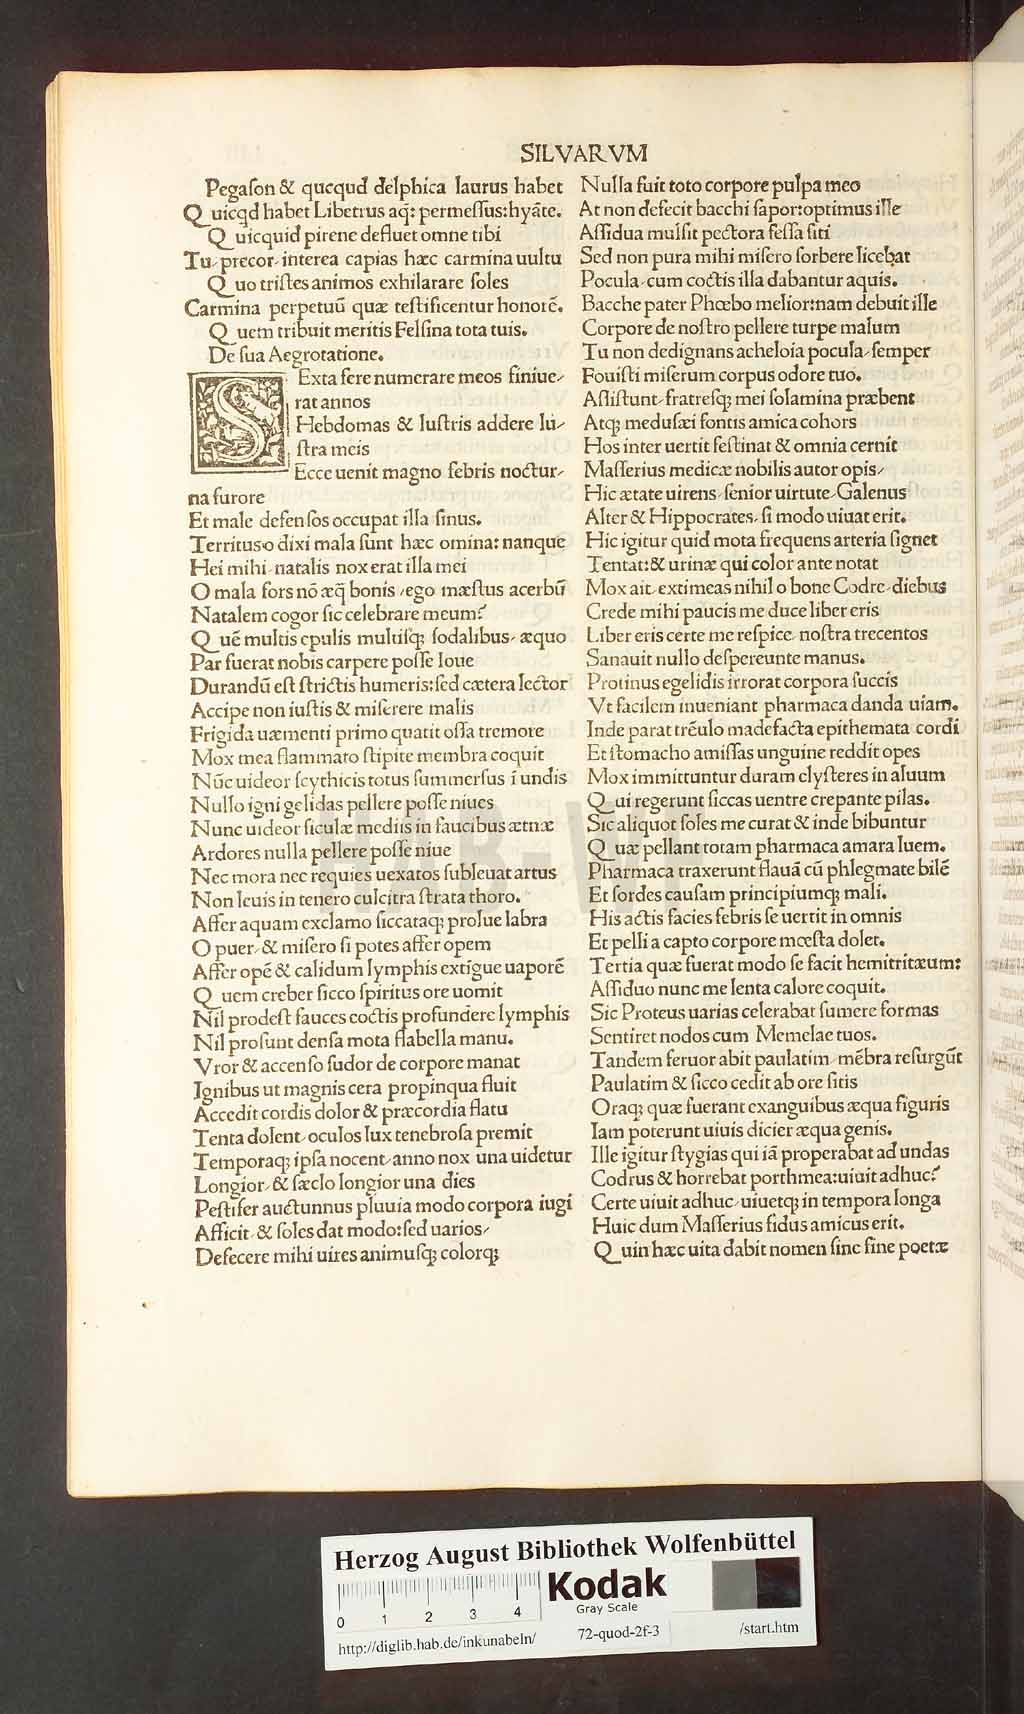 SILVARVM
Pegaſon & qucqud delphica laurus habet
Quicqd habet Libetrus aq̃: permeſſus: hyãte.
Quicquid pirene defluet omne tibi
Tu precor interea capias hæc carmina uultu
Quo triſtes animos exhilarare ſoles
Carmina perpetuũ quæ teſtificentur honorẽ.
Quem tribuit meritis Felſina tota tuis.
De ſua Aegrotatione.
SExta fere numerare meos finiue-
rat annos
Hebdomas & luſtris addere lu-
ſtra meis
Ecce uenit magno febris noctur-
na furore
Et male defenſos occupat illa ſinus.
Territus o dixi mala ſunt hæc omina: nanque
Hei mihi natalis nox erat illa mei
O mala fors nõ æq̃ bonis, ego mæſtus acerbũ
Natalem cogor ſic celebrare meum?
Quẽ multis epulis multiſq; ſodalibus, æquo
Par fuerat nobis carpere poſſe Ioue
Durandũ eſt ſtrictis humeris: ſed cætera lector
Accipe non iuſtis & miſerere malis
Frigida uæmenti primo quatit oſſa tremore
Mox mea flammato ſtipite membra coquit
Nũc uideor ſcythicis totus ſummerſus ĩ undis
Nullo igni gelidas pellere poſſe niues
Nunc uideor ſiculæ mediis in faucibus ætnæ
Ardores nulla pellere poſſe niue
Nec mora nec requies uexatos ſubleuat artus
Non leuis in tenero culcitra ſtrata thoro.
Affer aquam exclamo ſiccataq; prolue labra
O puer, & miſero ſi potes affer opem
Affer opẽ & calidum lymphis extĩgue uaporẽ
Quem creber ſicco ſpiritus ore uomit
Nil prodeſt fauces coctis profundere lymphis
Nil proſunt denſa mota flabella manu.
Vror & accenſo ſudor de corpore manat
Ignibus ut magnis cera propinqua fluit
Accedit cordis dolor & præcordia flatu
Tenta dolent, oculos lux tenebroſa premit
Temporaq; ipſa nocent, anno nox una uidetur
Longior, & ſæclo longior una dies
Peſtifer auctunnus pluuia modo corpora iugi
Afficit & ſoles dat modo: ſed uarios,
Defecere mihi uires animuſq; colorq;
Nulla fuit toto corpore pulpa meo
At non defecit bacchi ſapor: optimus ille
Aſſidua mulſit pectora feſſa ſiti
Sed non pura mihi miſero ſorbere licebat
Pocula, cum coctis illa dabantur aquis.
Bacche pater Phœbo melior: nam debuit ille
Corpore de noſtro pellere turpe malum
Tu non dedignans acheloia pocula, ſemper
Fouiſti miſerum corpus odore tuo.
Aſſiſtunt fratreſq; mei ſolamina præbent
Atq; meduſæi fontis amica cohors
Hos inter uertit feſtinat & omnia cernit
Maſſerius medicæ nobilis autor opis,
Hic ætate uirens, ſenior uirtute, Galenus
Alter & Hippocrates, ſi modo uiuat erit.
Hic igitur quid mota frequens arteria ſignet
Tentat: & urinæ qui color ante notat
Mox ait, extimeas nihil o bone Codre, diebus
Crede mihi paucis me duce liber eris
Liber eris certe me reſpice, noſtra trecentos
Sanauit nullo deſpereunte manus.
Protinus egelidis irrorat corpora ſuccis
Vt facilem inueniant pharmaca danda uiam.
Inde parat trẽulo madefacta epithemata cordi
Et ſtomacho amiſſas unguine reddit opes
Mox immittuntur duram clyſteres in aluum
Qui regerunt ſiccas uentre crepante pilas.
Sic aliquot ſoles me curat & inde bibuntur
Quæ pellant totam pharmaca amara luem.
Pharmaca traxerunt flauã cũ phlegmate bilẽ
Et ſordes cauſam principiumq; mali.
His actis facies febris ſe uertit in omnis
Et pelli a capto corpore mœſta dolet.
Tertia quæ fuerat modo ſe facit hemitritæum:
Aſſiduo nunc me lenta calore coquit.
Sic Proteus uarias celerabat ſumere formas
Sentiret nodos cum Memelae tuos.
Tandem feruor abit paulatim, mẽbra reſurgũt
Paulatim & ſicco cedit ab ore ſitis
Oraq; quæ fuerant exanguibus æqua figuris
Iam poterunt uiuis dicier æqua genis.
Ille igitur ſtygias qui iã properabat ad undas
Codrus & horrebat porthmea: uiuit adhuc?
Certe uiuit adhuc, uiuetq; in tempora longa
Huic dum Maſſerius fidus amicus erit.
Quin hæc uita dabit nomen ſine fine poetæ
HAB-WF
Herzog August Bibliothek Wolfenbüttel
0 1 2 3 4
Kodak
Gray Scale
http://diglib.hab.de/inkunabeln/ 72-quod-2f-3 /start.htm